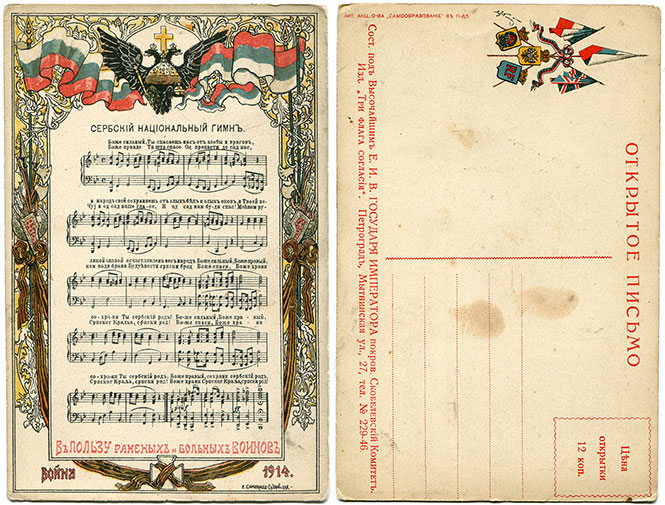 СЕРБСКІЙ НАЦІОНАЛЬНЫЙ ГИМНЪ.
Боже сильный, Ты спасаешь насъ отъ злобы и враговъ,
Боже правде Ти што спасе Од пропасти до сад нас,
и народъ свой сохраняешь отъ злыхъ бѣдъ и злыхъ оковъ, и Твоей ве-
Чуј и од сад наше гла-се, И од сад нам бу-ди спас! Моћном ру-
ликой славой осчастливленъ весь народъ Боже сильный, Боже правый,
ком води брани Будућности српски брод Боже спаси, Боже храни
со-хра-ни Ты сербскій родъ! Бо-же сильный, Боже пра-вый,
Српског Краља, српски род! Бо-же спаси, Боже хра-ни
со-храни Ты сербскій родъ, Боже правый, сохрани сербскій родъ.
Српског Краља, српски род! Боже храни Српског Краља, српски род!
ВЪ ПОЛЬЗУ РАНЕНЫХЪ И БОЛЬНЫХЪ ВОИНОВЪ
ВОЙНА 1914.
ЛИТ. АКЦ. О-ВА „САМООБРАЗОВАНІЕ" ВЪ П-ДѢ
Сост. подъ Высочайшимъ Е. И. В. ГОСУДАРЯ ИМПЕРАТОРА покров. Скобелевскій Комитетъ.
Изд. „Три флага согласія". Петроградъ, Мытнинская ул., 27, тел. № 229-46.
ОТКРЫТОЕ ПИСЬМО
Цѣна
открытки
12 коп.